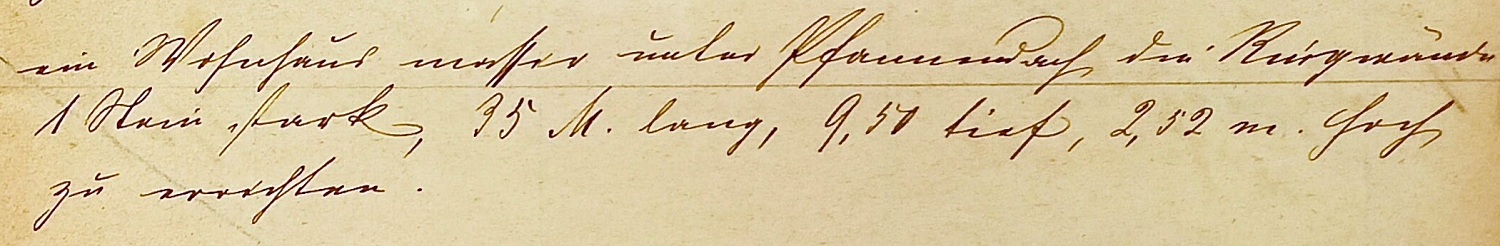 ein Wohnhaus massiv unter Pfannendach die Ringwände
1 Stein stark, 35 M. lang, 9,50 tief, 2,52 m. hoch
zu errichten.